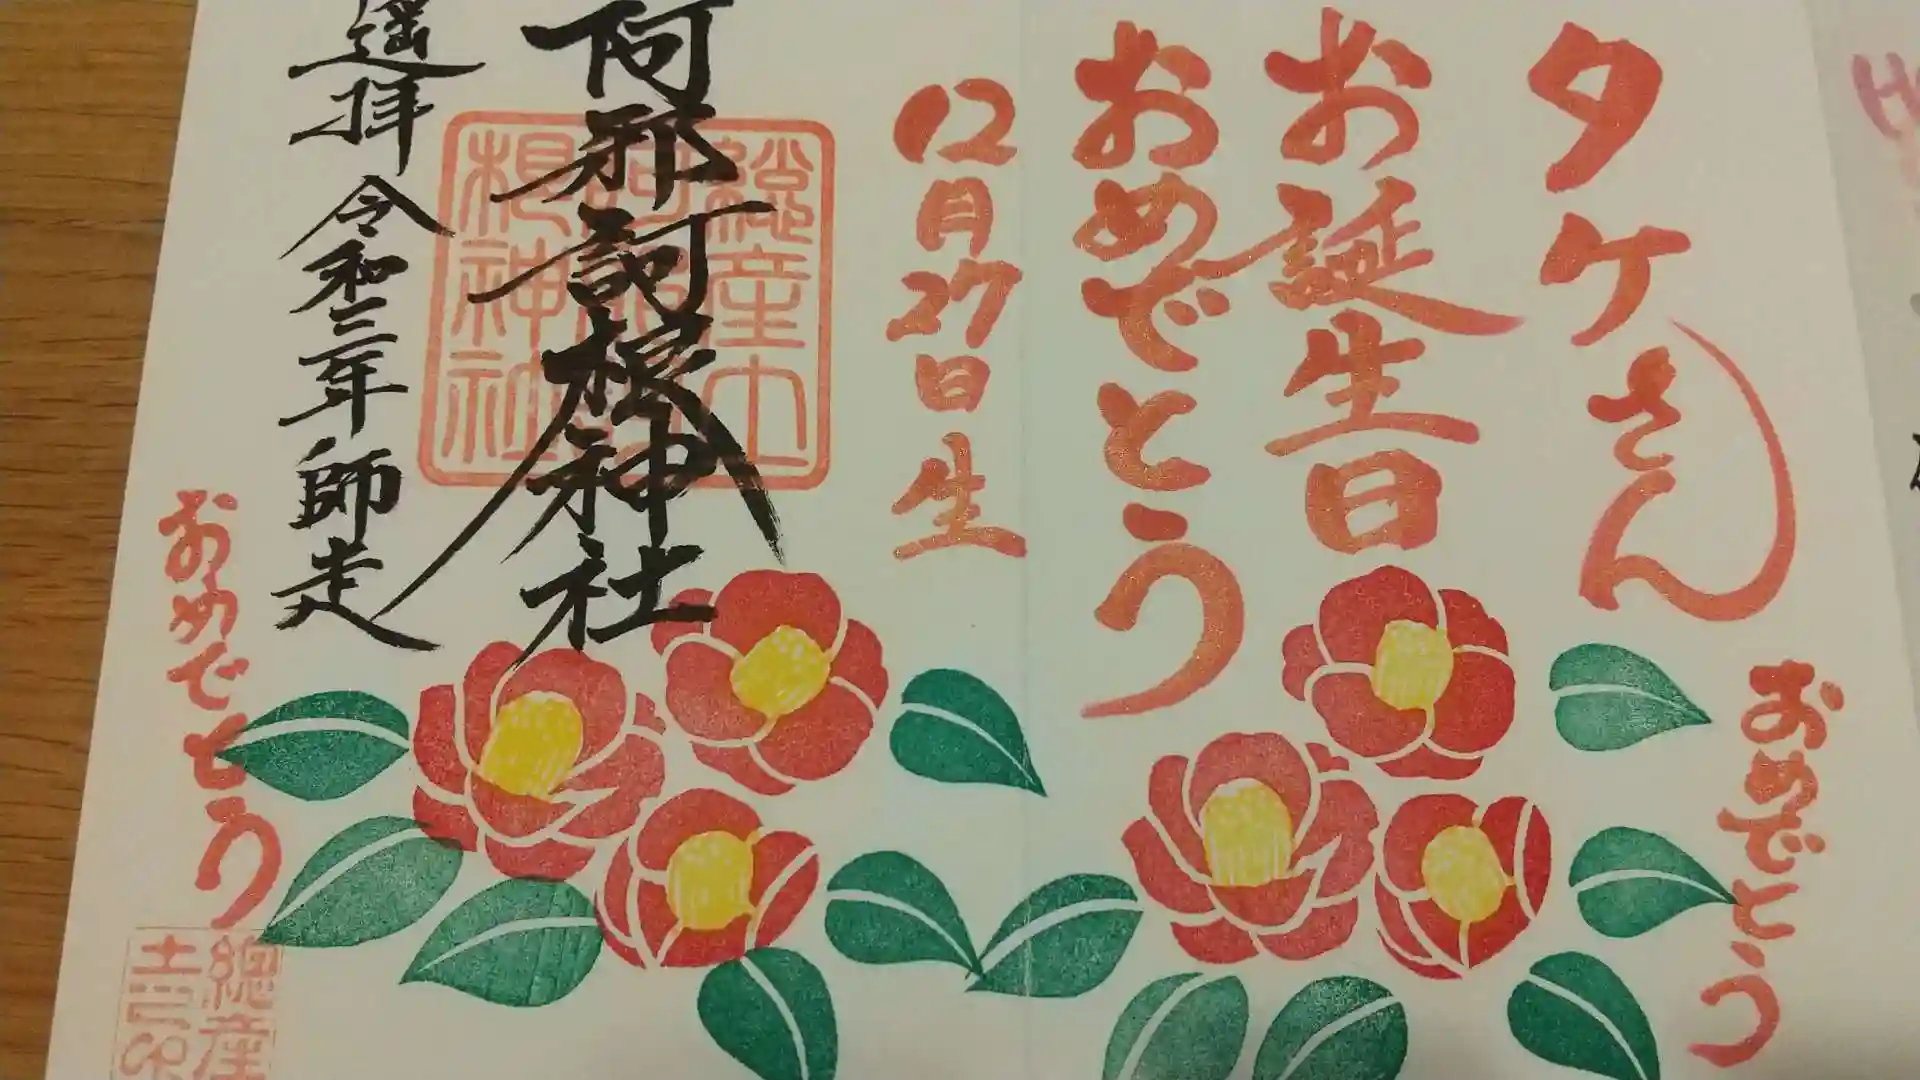 タケさん
お誕生日
おめでとう
12月27日生
おめでとう
阿邪訶根神社
總産土
根神社
遥拝 令和三年 師走
おめでとう
總産